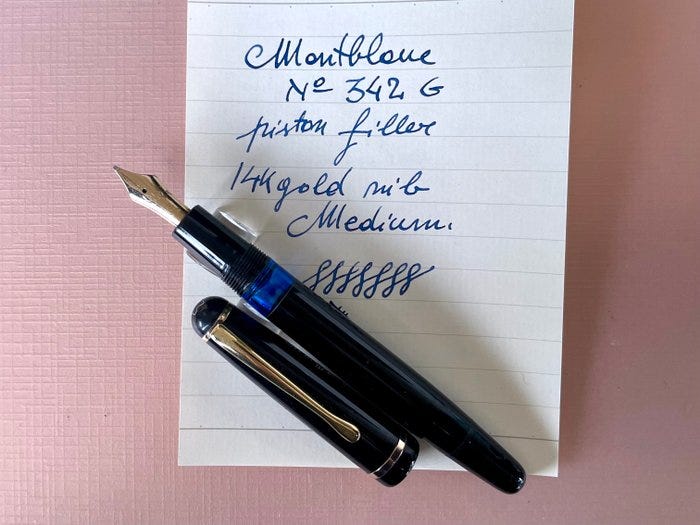 Montblanc
Nº 342 G
piston filler
14K gold nib
Medium.